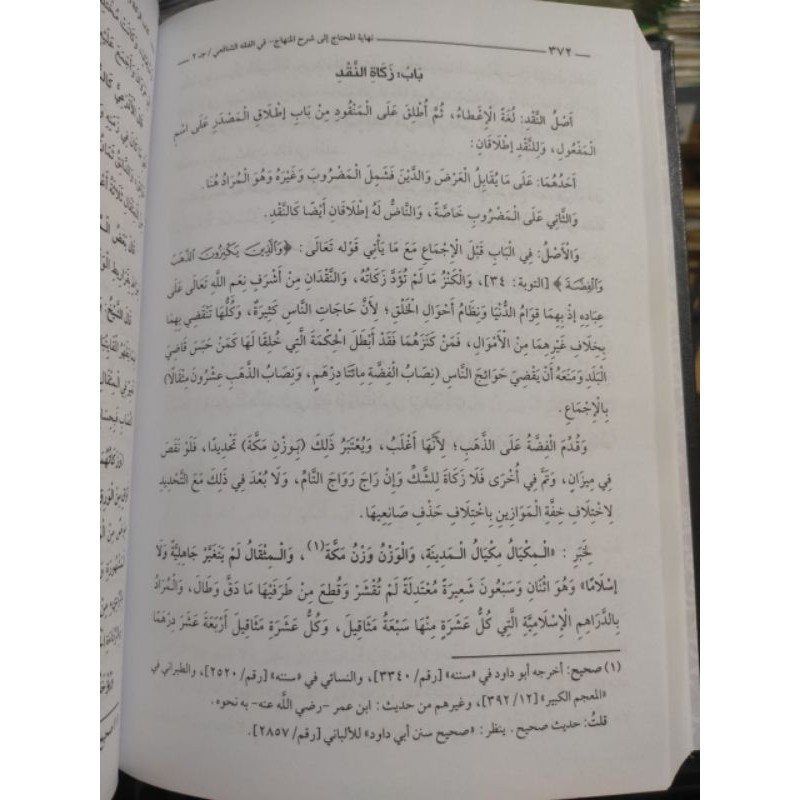 ٣٧٢
نهاية المحتاج إلى شرح المنهاج- في الفقه الشافعي / جـ ٢
بَابُ: زَكَاةِ النَّقْدِ
أَصْلُ النَّقْدِ: لُغَةً الْإِعْطَاءُ، ثُمَّ أُطْلِقَ عَلَى الْمَنْقُودِ مِنْ بَابِ إطْلَاقِ الْمَصْدَرِ عَلَى اسْمِ
الْمَفْعُولِ، وَلِلنَّقْدِ إطْلَاقَانِ:
أَحَدُهُمَا: عَلَى مَا يُقَابِلُ الْعَرْضَ وَالدَّيْنَ فَشَمِلَ الْمَضْرُوبَ وَغَيْرَهُ وَهُوَ الْمُرَادُ هُنَا.
وَالثَّانِي عَلَى الْمَضْرُوبِ خَاصَّةً، وَالنَّاضُّ لَهُ إطْلَاقَانِ أَيْضًا كَالنَّقْدِ.
وَالْأَصْلُ: فِي الْبَابِ قَبْلَ الْإِجْمَاعِ مَعَ مَا يَأْتِي قَوْله تَعَالَى: ﴿وَالَّذِينَ يَكْنِزُونَ الذَّهَبَ
وَالْفِضَّةَ﴾ [التوبة: ٣٤]، وَالْكَنْزُ مَا لَمْ تُؤَدَّ زَكَاتُهُ، وَالنَّقْدَانِ مِنْ أَشْرَفِ نِعَمِ اللَّهِ تَعَالَى عَلَى
عِبَادِهِ إذْ بِهِمَا قِوَامُ الدُّنْيَا وَنِظَامُ أَحْوَالِ الْخَلْقِ؛ لِأَنَّ حَاجَاتِ النَّاسِ كَثِيرَةٌ، وَكُلُّهَا تَنْقَضِي بِهِمَا
بِخِلَافِ غَيْرِهِمَا مِنْ الْأَمْوَالِ، فَمَنْ كَنَزَهُمَا فَقَدْ أَبْطَلَ الْحِكْمَةَ الَّتِي خُلِقَا لَهَا كَمَنْ حَبَسَ قَاضِيَ
الْبَلَدِ وَمَنَعَهُ أَنْ يَقْضِيَ حَوَائِجَ النَّاسِ (نِصَابُ الْفِضَّةِ مِائَتَا دِرْهَمٍ، وَنِصَابُ الذَّهَبِ عِشْرُونَ مِثْقَالًا)
بِالْإِجْمَاعِ.
وَقُدِّمَ الْفِضَّةُ عَلَى الذَّهَبِ؛ لِأَنَّهَا أَغْلَبُ، وَيُعْتَبَرُ ذَلِكَ (بِوَزْنِ مَكَّةَ) تَحْدِيدًا، فَلَوْ نَقَصَ
فِي مِيزَانٍ، وَتَمَّ فِي أُخْرَى فَلَا زَكَاةَ لِلشَّكِّ وَإِنْ رَاجَ رَوَاجَ التَّامِّ، وَلَا بُعْدَ فِي ذَلِكَ مَعَ التَّحْدِيدِ
لِاخْتِلَافِ خِفَّةِ الْمَوَازِينِ بِاخْتِلَافِ حَذْفِ صَانِعِيهَا.
لِخَبَرِ: «الْمِكْيَالُ مِكْيَالُ الْمَدِينَةِ، وَالْوَزْنُ وَزْنُ مَكَّةَ(١)، وَالْمِثْقَالُ لَمْ يَتَغَيَّرْ جَاهِلِيَّةً وَلَا
إسْلَامًا» وَهُوَ اثْنَانِ وَسَبْعُونَ شَعِيرَةً مُعْتَدِلَةً لَمْ تُقْشَرْ وَقُطِعَ مِنْ طَرَفَيْهَا مَا دَقَّ وَطَالَ، وَالْمُرَادُ
بِالدَّرَاهِمِ الْإِسْلَامِيَّةِ الَّتِي كُلُّ عَشَرَةٍ مِنْهَا سَبْعَةُ مَثَاقِيلَ، وَكُلُّ عَشَرَةِ مَثَاقِيلَ أَرْبَعَةَ عَشَرَ دِرْهَمًا
(١) صحيح: أخرجه أبو داود في «سننه» [رقم/ ٣٣٤٠]، والنسائي في «سننه» [رقم/ ٢٥٢٠]، والطبراني في
«المعجم الكبير» [١٢/ ٣٩٢]، وغيرهم من حديث: ابن عمر -رضي اللَّه عنه- به نحوه.
قلتُ: حديث صحيح. ينظر: «صحيح سنن أبي داود» للألباني [رقم/ ٢٨٥٧].